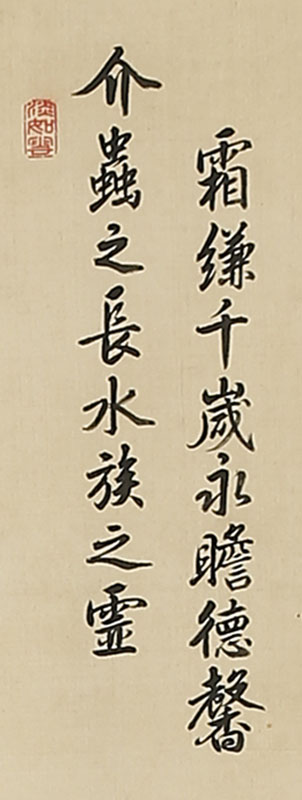 介蟲之長水族之霊
霜縑千歲永瞻德馨